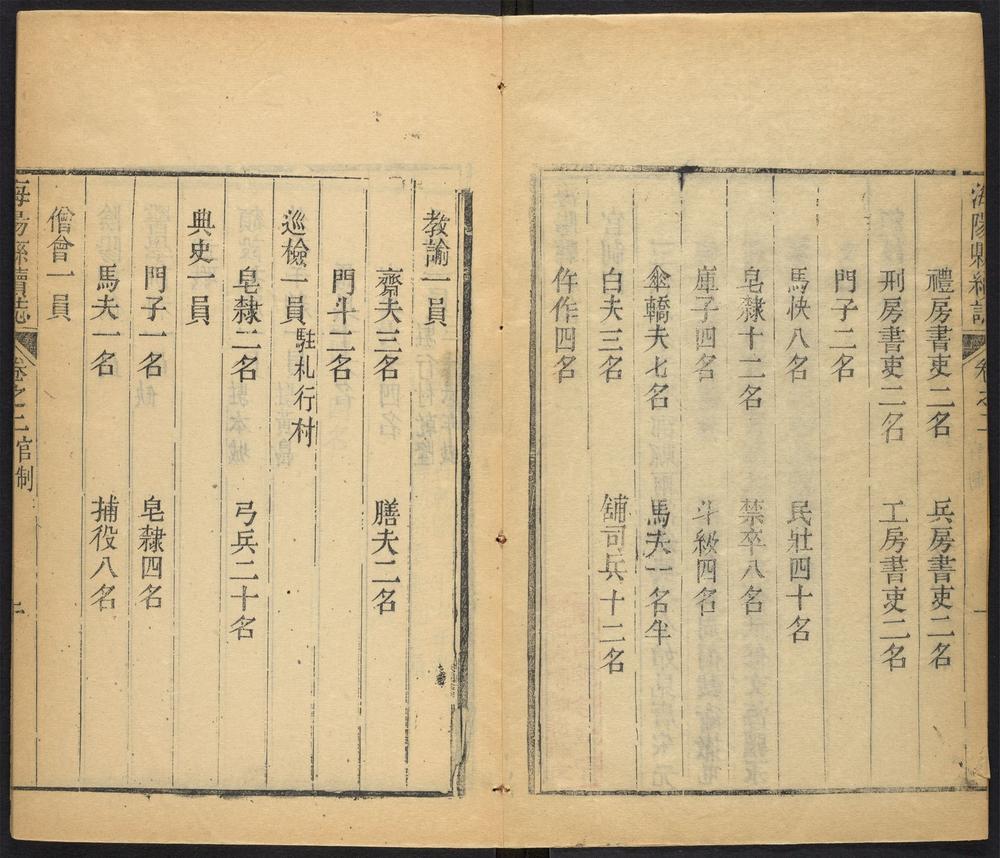 海陽縣續誌 卷之二
禮房書吏二名 兵房書吏二名
刑房書吏二名 工房書吏二名
門子二名
馬快八名 民壯四十名
皂隸十二名 禁卒八名
庫子四名 斗級四名
傘轎夫七名 馬夫一名半
白夫三名 舖司兵十二名
仵作四名
教諭一員
齋夫三名 膳夫二名
門斗二名
巡檢一員 駐札行村
皂隸二名 弓兵二十名
典史一員
門子一名 皂隸四名
馬夫一名 捕役八名
僧會一員
海陽縣續誌 卷之二官制